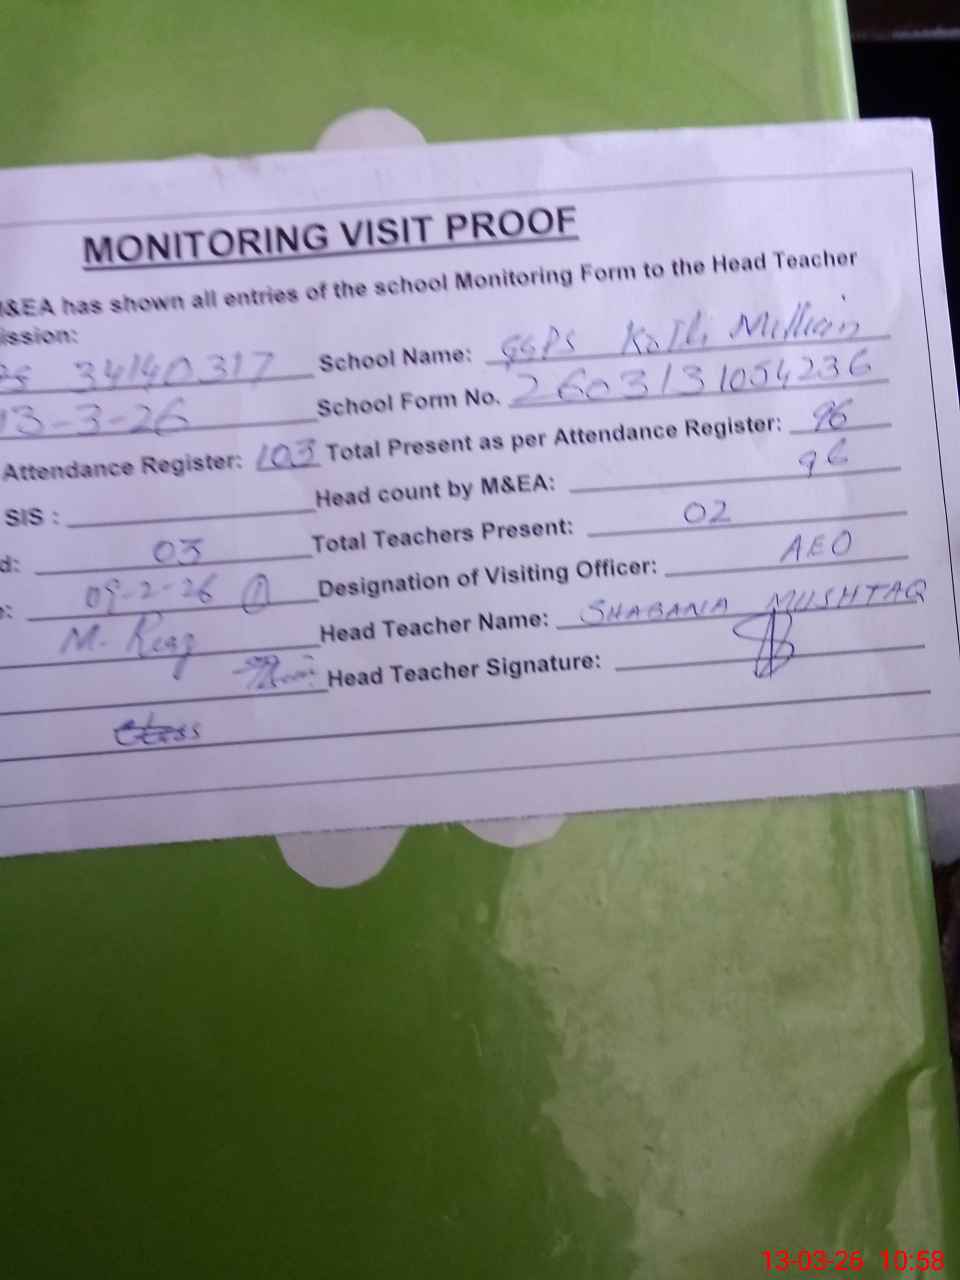 MONITORING VISIT PROOF
M&EA has shown all entries of the school Monitoring Form to the Head Teacher
ission:
34140317 School Name: GGPS Kothi Millian
13-3-26 School Form No. 2603131054236
Attendance Register: 103 Total Present as per Attendance Register: 96
SIS : Head count by M&EA: 96
d: 03 Total Teachers Present: 02
: 09-2-26 Designation of Visiting Officer: AEO
M. Riaz Head Teacher Name: SHABANA MUSHTAQ
Head Teacher Signature:
13-03-26 10:58